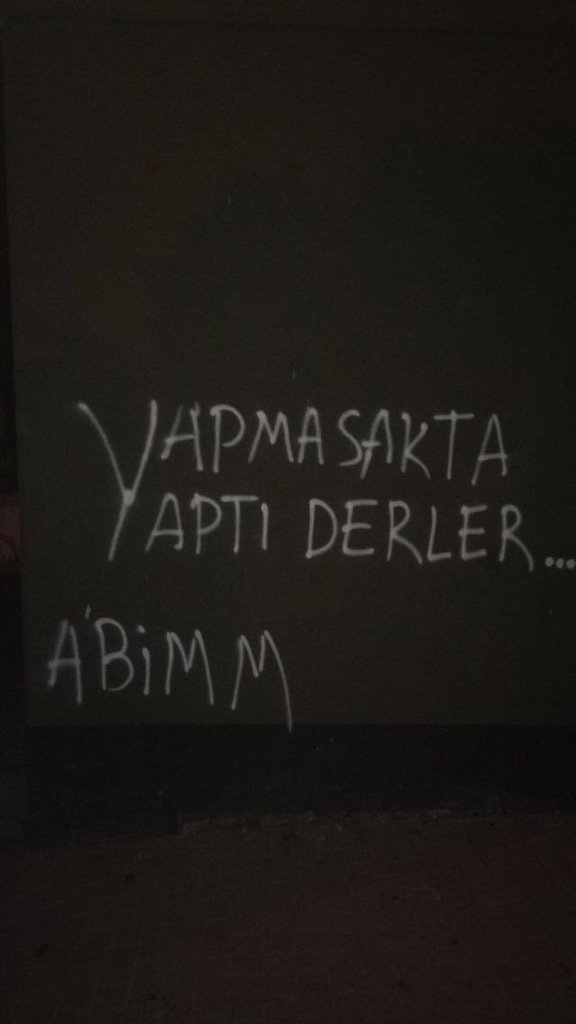 YAPMASAKTA
YAPTI DERLER...
A'BİMM